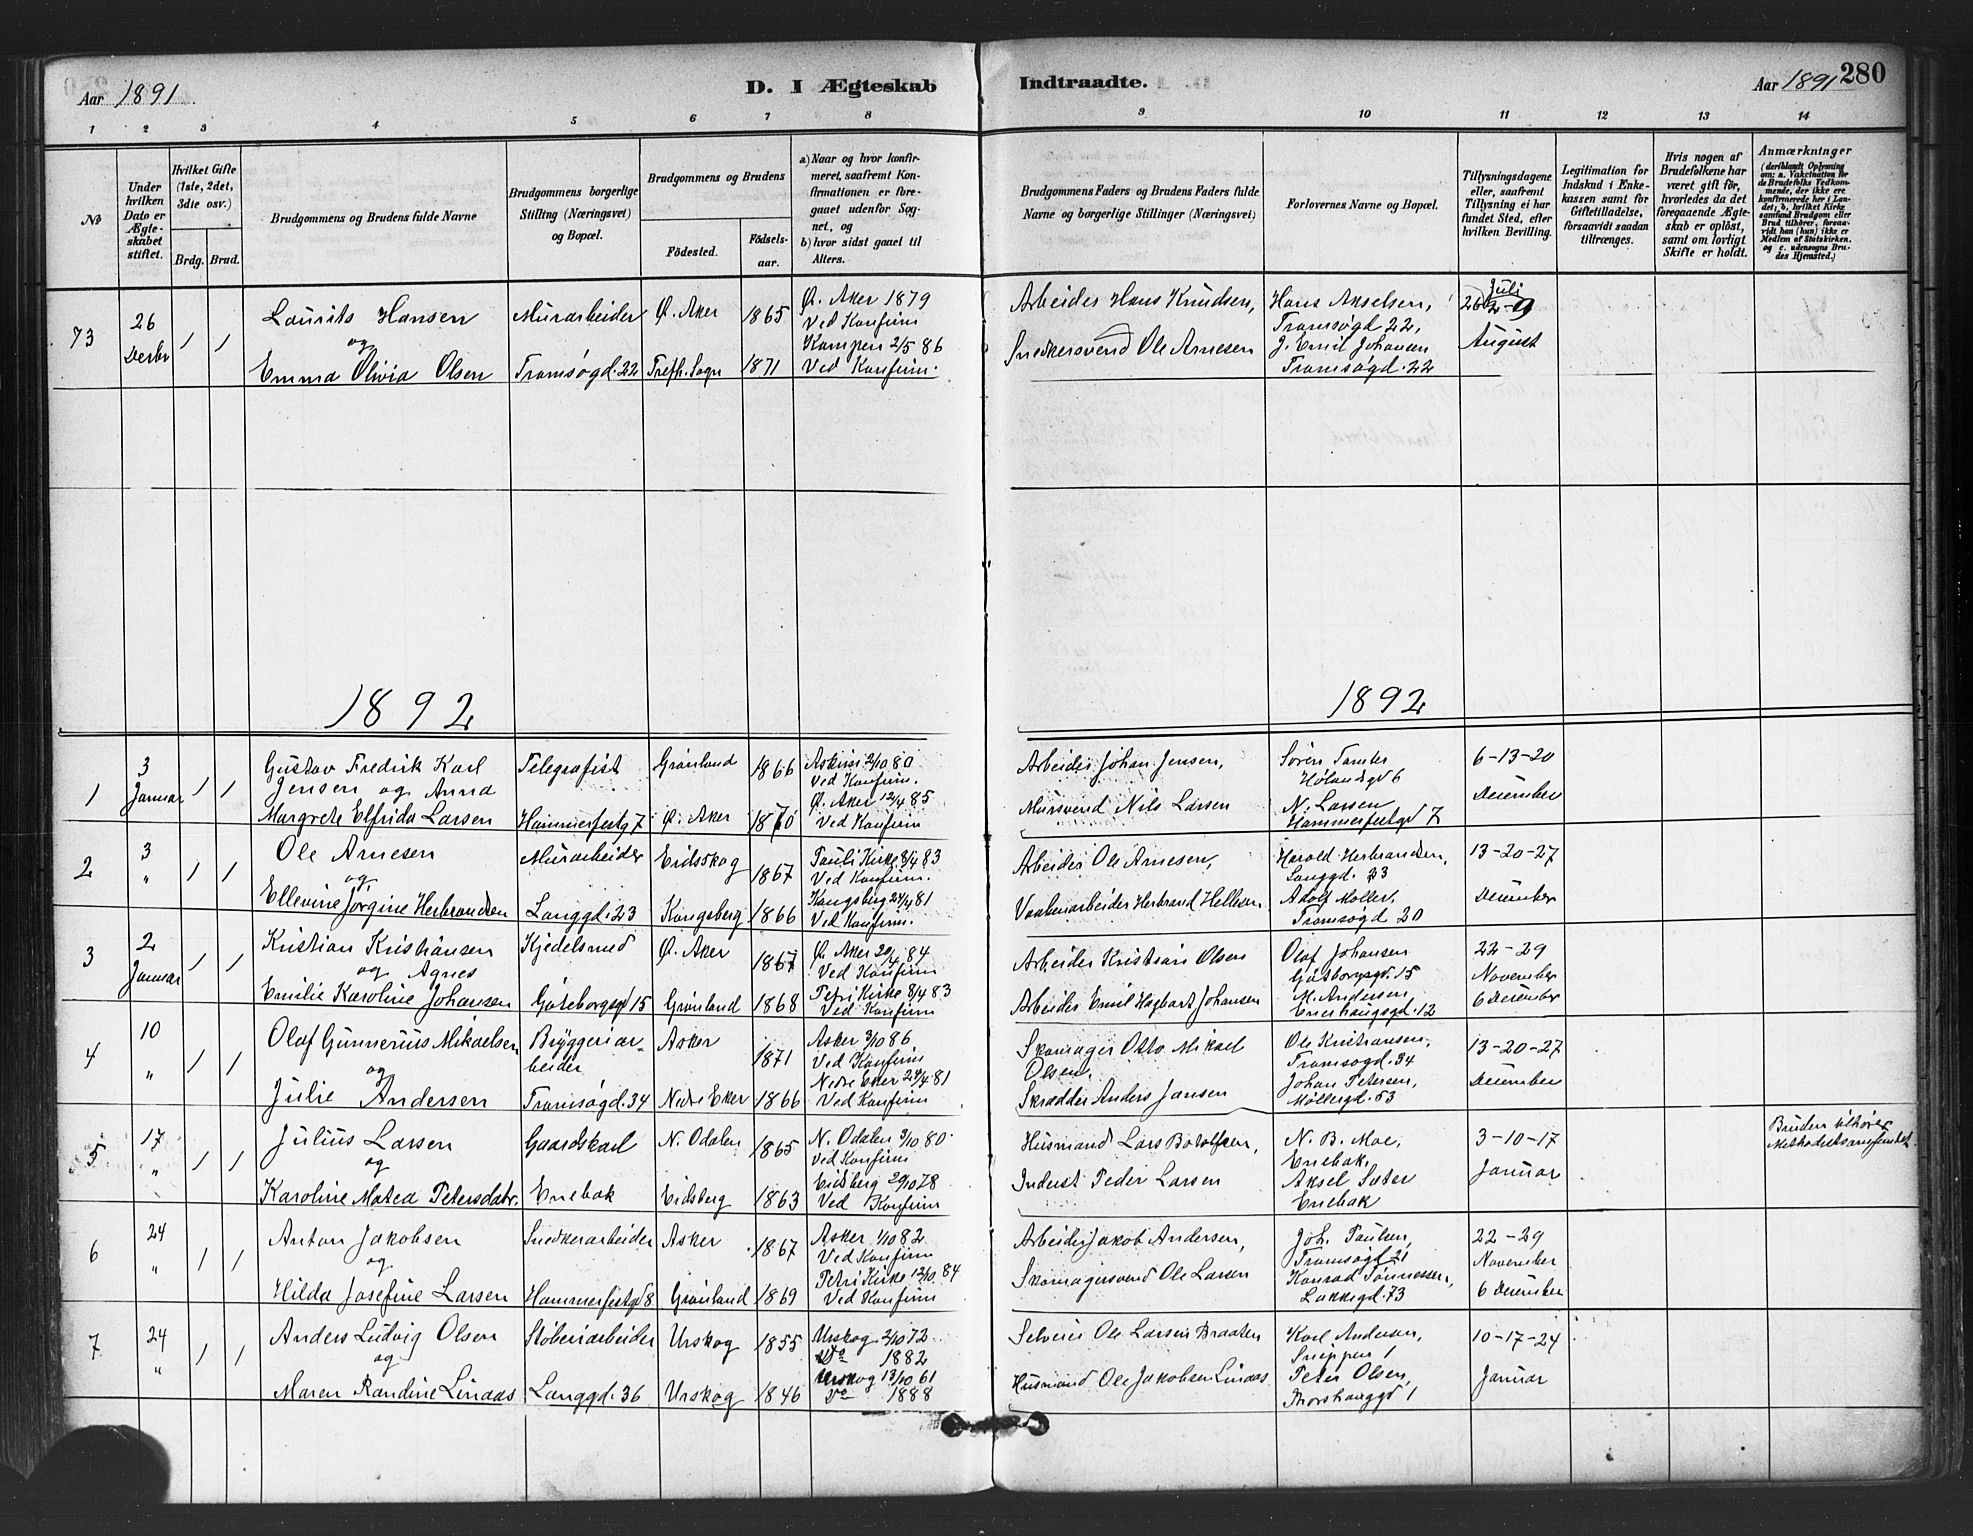 Aar 1891.
D. I Ægteskab
Indtraadte.
Aar 1891
280
1 2 3 4 5 6 7 8
9 10 11 12 13 14
No
Under hvilken Dato er Ægteskabet stiftet.
Hvilket Gifte (1ste, 2det, 3die osv.)
Brdg. Brud.
Brudgommens og Brudens fulde Navne
Brudgommens borgerlige Stilling (Næringsvei) og Bopæl.
Brudgommens og Brudens
Födested.
Födselsaar.
a) Naar og hvor konfirmeret, saafremt Konfirmationen er foregaaet udenfor Sognet, og
b) hvor sidst gaaet til Alters.
Brudgommens Faders og Brudens Faders fulde Navne og borgerlige Stillinger (Næringsvei)
Forlovernes Navne og Bopæl.
Tillysningsdagene eller, saafremt Tillysning ei har fundet Sted, efter hvilken Bevilling.
Legitimation for Indskud i Enkekassen samt for Giftetilladelse, forsaavidt saadan tiltrænges.
Hvis nogen af Brudefolkene har været gift för, hvorledes da det foregaaende Ægteskab er oplöst, samt om lovligt Skifte er holdt.
Anmærkninger
(deriblandt Oplysning om: a. Vakcination for de Brudefolks Vedkommende, der ikke ere konfirmerede her i Landet; b, hvilket Kirkesamfund Brudgom eller Brud tilhörer, forsaavidt han (hun) ikke er Medlem af Statskirken, og c. udensogns Brudes Hjemsted.)
73 26 Decbr 1 1
Laurits Hansen
og
Emma Olivia Olsen
Murarbeider
Tromsøgd. 22
Ø. Aker 1865
Trefh. Sogn 1871
Ø. Aker 1879
Ved Konfirm
Kampen 2/5 86
Ved Konfirm.
Arbeider Hans Knudsen,
Snedkersvend Ole Arnesen
Hans Akselsen,
Tromsøgd 22,
J. Emil Johansen
Tromsøgd. 22
Juli
26 2-9
August
1892
1892
1 3 Januar 1 1
Gustav Fredrik Karl
Jensen og Anna
Margrete Elfrida Larsen
Telegrafist
Hammerfestg 7
Grønland 1866
Ø. Aker 1870
2/10 80
Ved Konfirm.
Ø. Aker 12/4 85
Ved Konfirm
Arbeider Johan Jensen,
Mursvend Nils Larsen
Søren
Hølandsgd 6
N. Larsen
Hammerfestgd 7
6-13-20
December
2 3 " 1 1
Ole Arnesen
og
Ellevine Jørgine Herbrandsen
Murarbeider
Langgd. 23
Eidsskog 1867
Kongsberg 1866
Pauli Kirke 8/4 83
Ved Konfirm.
Kongsberg 24/4 81
Ved Konfirm.
Arbeider Ole Arnesen,
Vaabenarbeider Herbrand Hellesen
Harold Herbrandsen,
Langgd. 23
Adolf Møller,
Tromsøgd 20
13-20-27
December
3 2 Januar 1 1
Kristian Kristiansen
og Agnes
Emilie Karoline Johansen
Kjedelsmed
Göteborgsgd 15
Ø. Aker 1867
Grønland 1868
Ø. Aker 20/4 84
Ved Konfirm
Petri Kirke 8/4 83
Ved Konfirm
Arbeider Kristian Olsen
Arbeider Emil Hagbart Johansen
Olaf Johansen
Göteborgsgd. 15
M. Andersen
Enerhaugsgd. 12
22-29
November
6 December
4 10 " 1 1
Olaf Gunnerius Mikaelsen
og
Julie Andersen
Bryggeriar-
beider
Tromsøgd. 34
Asker 1871
Nedre Eker 1866
Asker 3/10 86
Ved Konfirm
Nedre Eker 24/4 81
Ved Konfirm
Skomager Otto Mikael
Olsen,
Skrædder Anders Jansen
Ole Kristiansen,
Tromsøgd. 34
Johan Petersen,
Møllergd. 53
13-20-27
December
5 17 " 1 1
Julius Larsen
og
Karoline Matea Petersdatr.
Gaardskarl
Enebak
N. Odalen 1865
Eidsberg 1863
N. Odalen 3/10 80.
Ved Konfirm
Eidsberg 29/10 78
Ved Konfirm
Husmand Lars
Inderst Peder Larsen
N. B. Moe,
Enebak,
Aksel Sæter
Enebak
3-10-17
Januar
Bruden tilhører
Methodistsamfundet
6 24 " 1 1
Anton Jakobsen
og
Hilda Josefine Larsen
Snedkerarbeider
Hammerfestgd 8
Asker 1867
Grønland 1869
Asker 1/10 82
Ved Konfirm
Petri Kirke 12/10 84
Ved Konfirm
Arbeider Jakob Andersen,
Skomagersvend Ole Larsen
Joh. Paulsen,
Tromsøgd 21
Konrad Tønnessen,
Lakkegd. 73
22-29
November
6 December
7 24 " 1 1
Anders Ludvig Olsen
og
Maren Randine Linaas
Støberiarbeider
Langgd. 36
Urskog 1855
Urskog 1846
Urskog 2/10 72
do 1882
Urskog 13/10 61
do 1888
Selveier Ole Larsen Braaten
Husmand Ole Jakobsen Linaas
Karl Andersen,
Snippen 1
Peter Olsen,
1
10-17-24
Januar